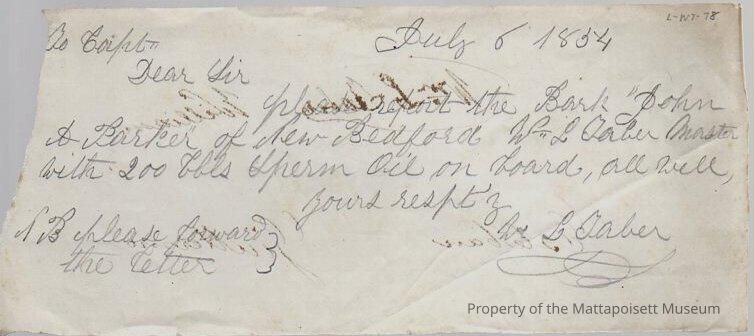 L-W7-78
To Capt"
July 6 1854
Dear Sir
please report the Bark "John
A Parker" of New Bedford Wm L Taber Master
with 200 bbls Sperm Oil on board, all well,
yours respt'y
Wm L Taber
N B please forward
the letter
Property of the Mattapoisett Museum